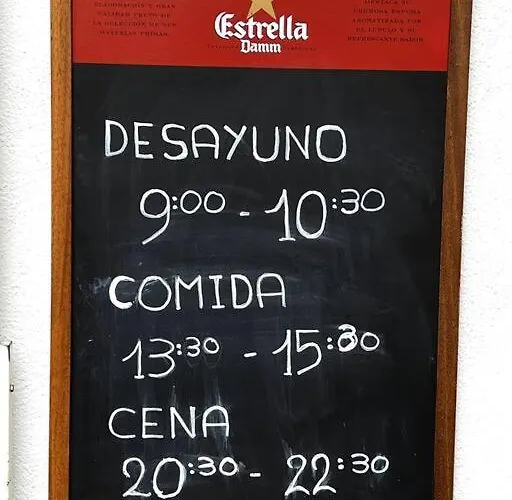 ELABORACIÓN Y GRAN
CALIDAD FRUTO DE
LA SELECCIÓN DE SUS
MATERIAS PRIMAS.
Estrella
Damm
DESTACA SU
CREMOSA ESPUMA
AROMATIZADA POR
EL LÚPULO Y SU
REFRESCANTE SABOR
DESAYUNO
9:00 - 10:30
COMIDA
13:30 - 15:30
CENA
20:30 - 22:30